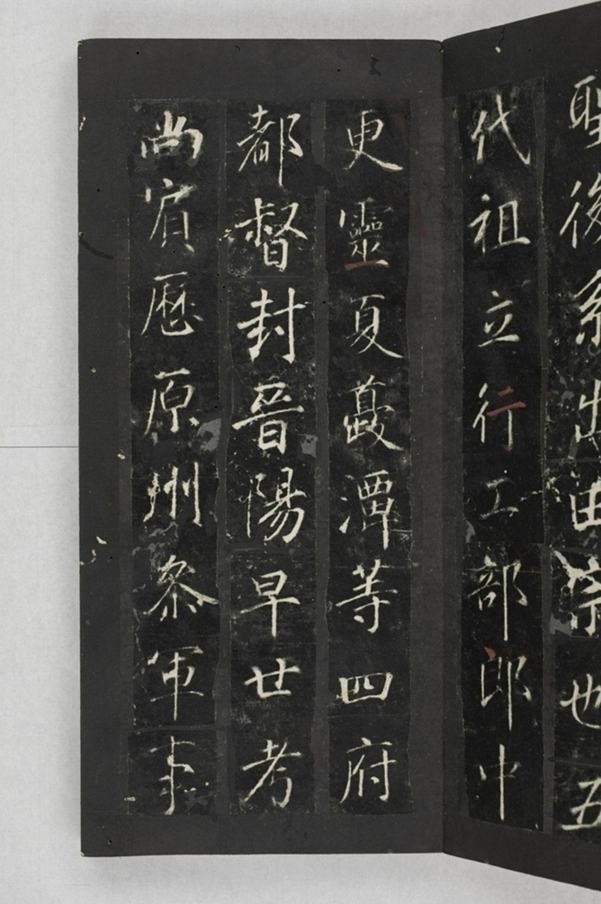 聖後系出宗也五
代祖立行工部郎中
更靈夏夔潭等四府
都督封晉陽早世考
尚賓歷原州叅軍事